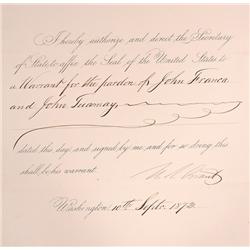 I hereby authorize and direct the Secretary
of State to affix the Seal of the United States to
a Warrant for the pardon of John Franca
and John
dated this day and signed by me, and for so doing this
shall be his warrant.
U. S. Grant
Washington 10th Septr. 1872